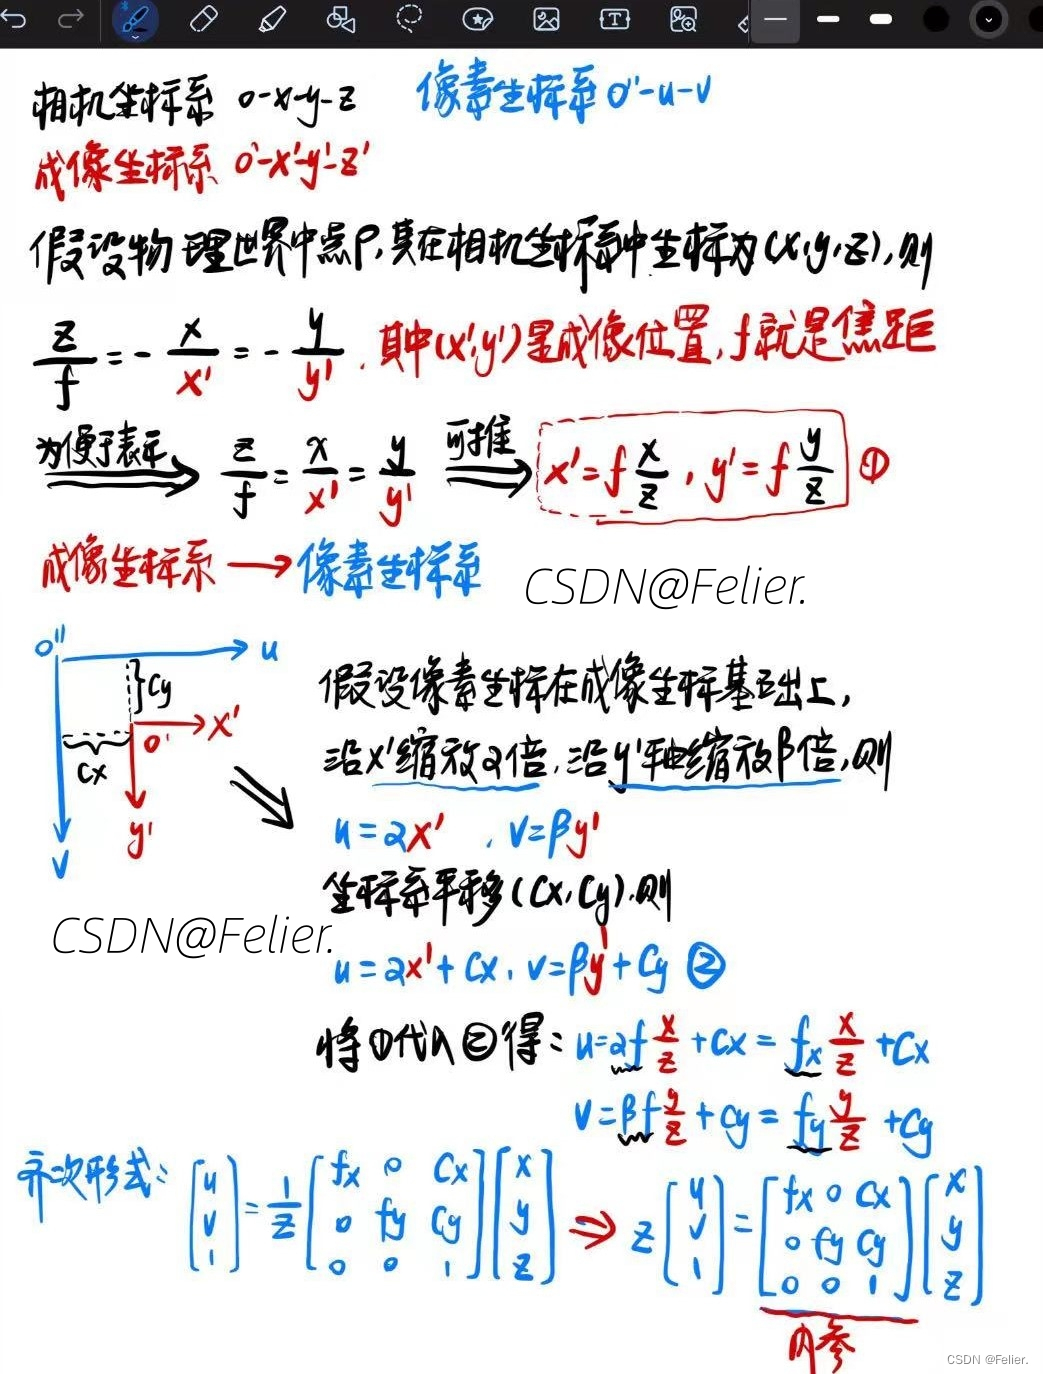 相机坐标系 o-x-y-z 像素坐标系 o''-u-v
成像坐标系 o'-x'-y'-z'
假设物理世界中点P,其在相机坐标系中坐标为(x,y,z),则
z/f = - x/x' = - y/y' . 其中(x',y')是成像位置,f就是焦距
为便于表示 z/f = x/x' = y/y' 可推 x' = f x/z , y' = f y/z ①
成像坐标系 → 像素坐标系
CSDN@Felier.
o'' u
cy
x'
o'
cx
y'
v
假设像素坐标在成像坐标基础上,
沿x'缩放α倍,沿y'轴缩放β倍,则
u = αx' , v = βy'
坐标系平移(cx,cy),则
CSDN@Felier.
u = αx' + cx , v = βy' + cy ②
将①代入②得: u = αf x/z + cx = fx x/z + cx
v = βf y/z + cy = fy y/z + cy
齐次形式: [u v 1] = 1/z [fx 0 cx; 0 fy cy; 0 0 1] [x y z] ⇒ z [u v 1] = [fx 0 cx; 0 fy cy; 0 0 1] [x y z]
内参
CSDN @Felier.